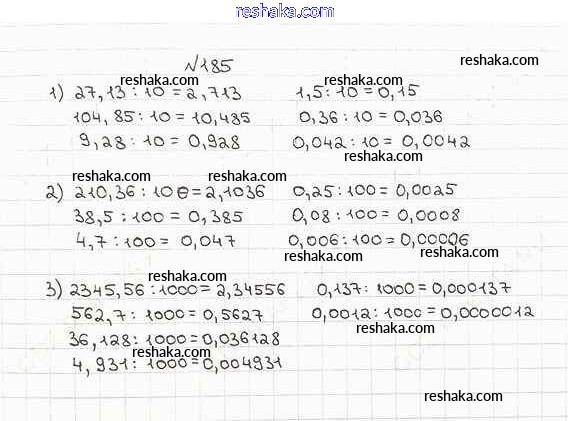 reshaka.com
№185
reshaka.com
reshaka.com reshaka.com
1) 27,13 : 10 = 2,713 1,5 : 10 = 0,15
104,85 : 10 = 10,485 0,36 : 10 = 0,036
reshaka.com
9,28 : 10 = 0,928 0,042 : 10 = 0,0042
reshaka.com
reshaka.com reshaka.com
2) 210,36 : 100 = 2,1036 0,25 : 100 = 0,0025
38,5 : 100 = 0,385 0,08 : 100 = 0,0008
4,7 : 100 = 0,047 0,006 : 100 = 0,00006
reshaka.com reshaka.com
reshaka.com
3) 2345,56 : 1000 = 2,34556 0,137 : 1000 = 0,000137
562,7 : 1000 = 0,5627 0,0012 : 1000 = 0,0000012
reshaka.com
36,128 : 1000 = 0,036128
reshaka.com
4,931 : 1000 = 0,004931
reshaka.com